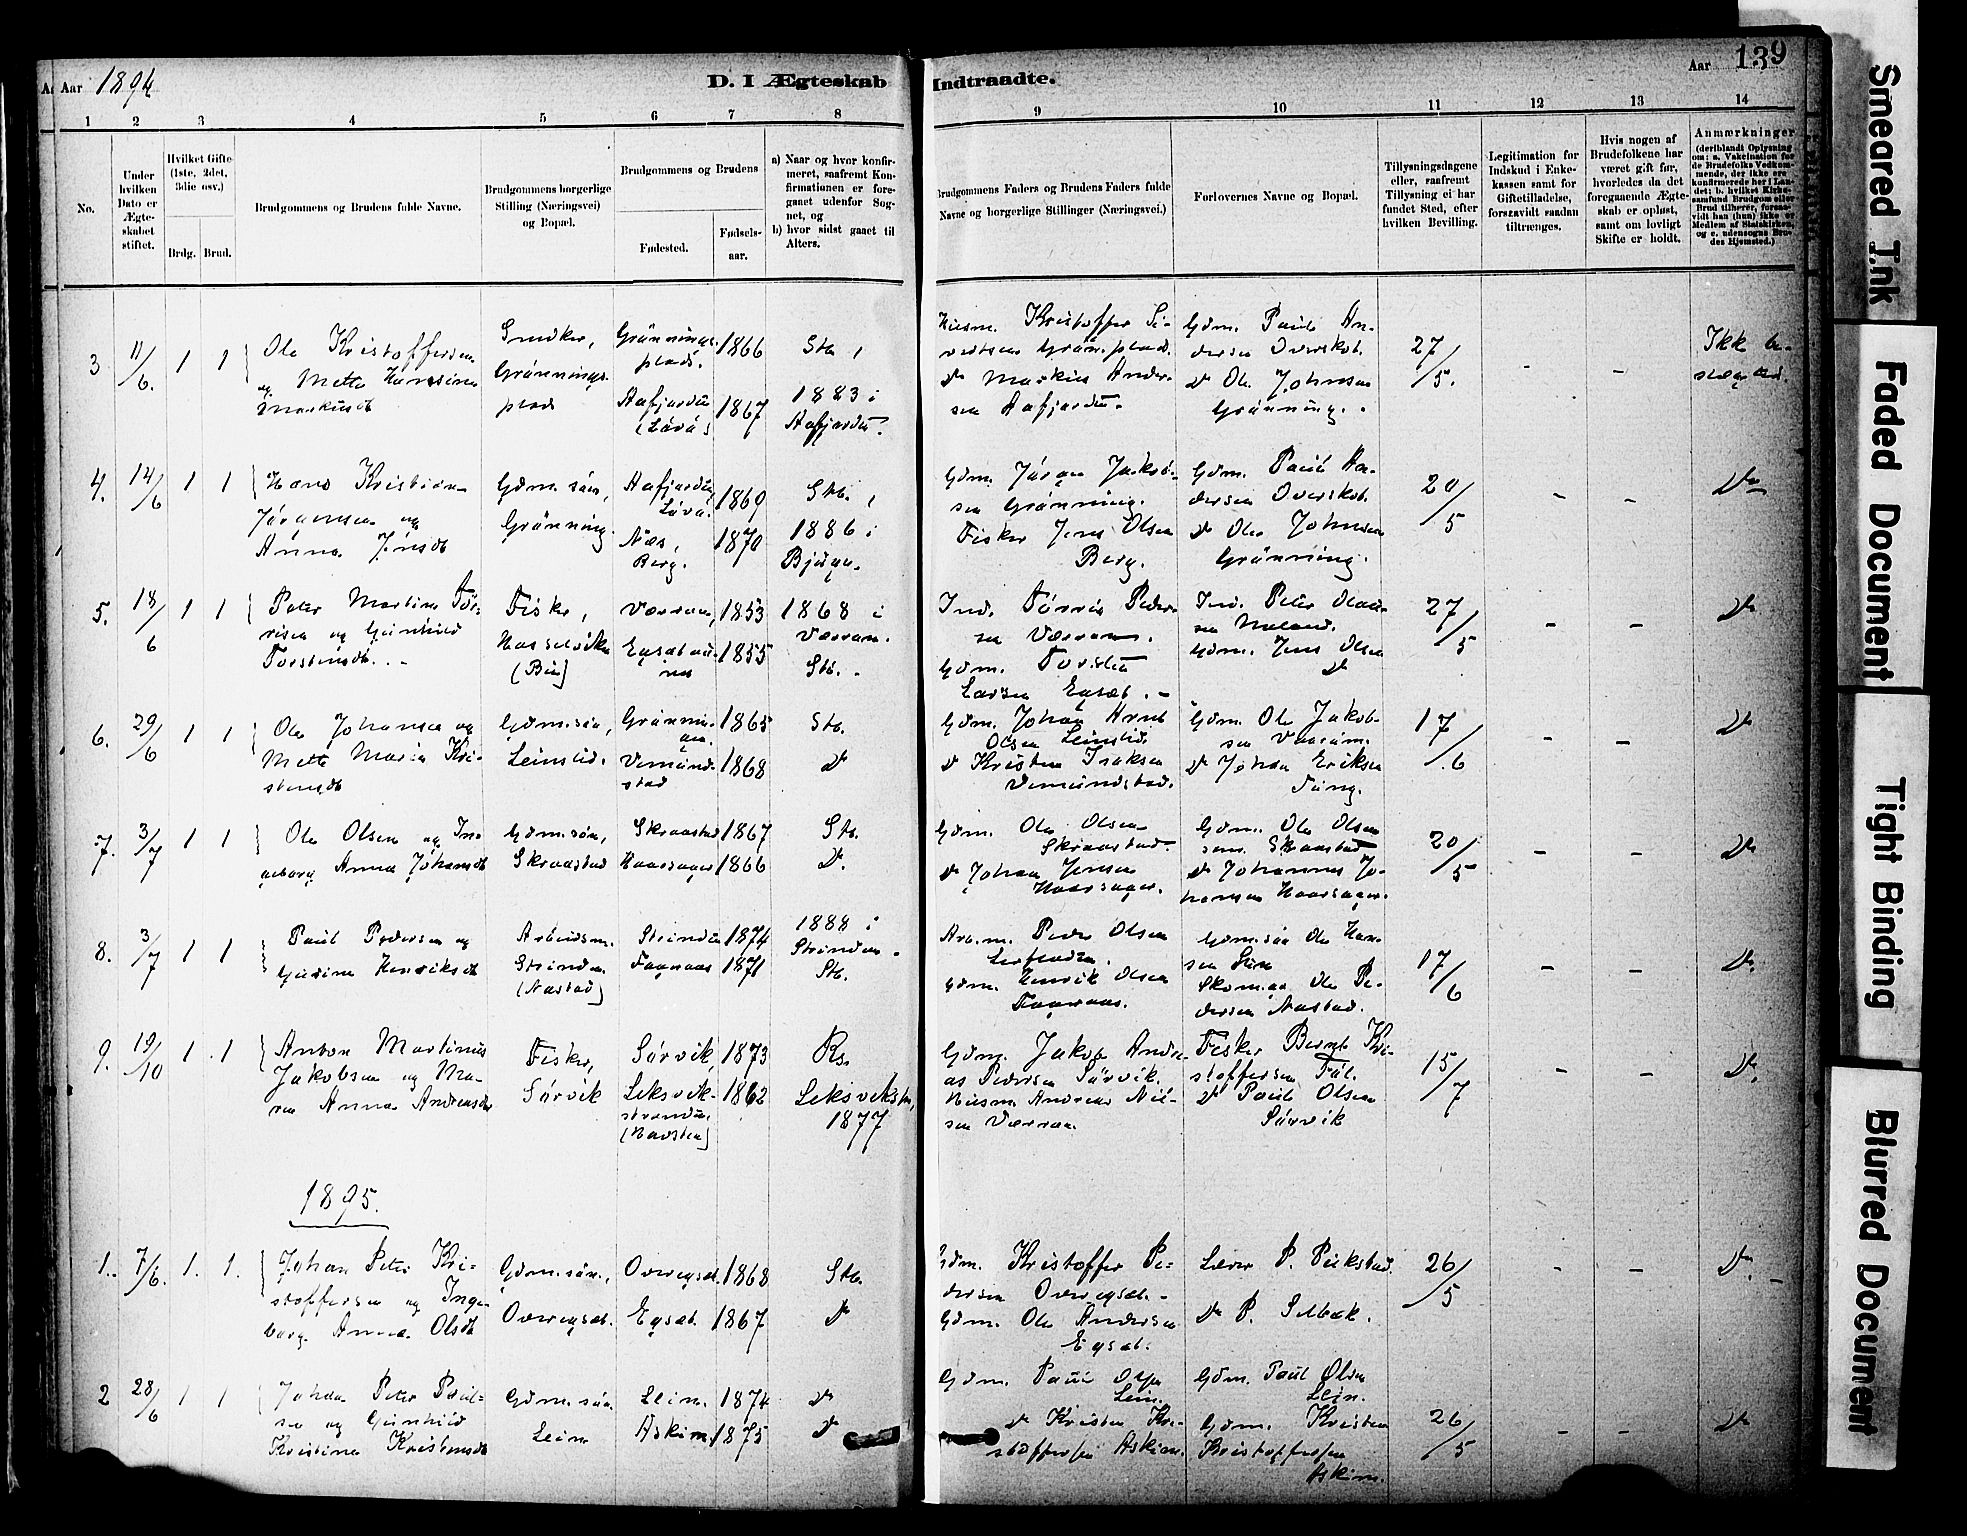 Aar 1894
D. I Ægteskab Indtraadte.
Aar 139
1 2 3 4 5 6 7 8 9 10 11 12 13 14
No.
Under hvilken Dato er Ægteskabet stiftet.
Hvilket Gifte (1ste, 2det, 3die osv.)
Brdg. Brud.
Brudgommens og Brudens fulde Navne.
Brudgommens borgerlige Stilling (Næringsvei) og Bopæl.
Brudgommens og Brudens
Fødested.
Fødselsaar.
a) Naar og hvor konfirmeret, saafremt Konfirmationen er foregaaet udenfor Sognet, og
b) hvor sidst gaaet til Alters.
Brudgommens Faders og Brudens Faders fulde Navne og borgerlige Stillinger (Næringsvei.)
Forlovernes Navne og Bopæl.
Tillysningsdagene eller, saafremt Tillysning ei har fundet Sted, efter hvilken Bevilling.
Legitimation for Indskud i Enkekassen samt for Giftetilladelse, forsaavidt saadan tiltrænges.
Hvis nogen af Brudefolkene har været gift før, hvorledes da det foregaaende Ægteskab er opløst, samt om lovligt Skifte er holdt.
Anmærkninger (deriblandt Oplysning om: a. Vakcination for de Brudefolks Vedkommende, der ikke ere konfirmerede her i Landet; b. hvilket Kirkesamfund Brudgom eller Brud tilhører, forsaavidt han (hun) ikke er Medlem af Statskirken, og c. udensogns Brudes Hjemsted.)
3 11/6. 1 1
Ole Kristoffersen
og Mette Hansine
Markusdt
Snedker,
Grønnings-
plads
Grønnings-
plads. 1866
Aafjorden 1867
Stb,
1883 i
Aafjorden.
Husm. Kristoffer Si-
vertsen Grøn. plads.
do Markus Ander-
sen Aafjorden.
Gdm. Paul An-
dersen Overskot.
do Ole Johnsen
Grønning.
27/5. - -
Ikk be-
slægted.
4. 14/6 1 1
Hans Kristian
Jørgensen og
Anna Jensdt
Gdm.søn,
Grønning.
Aafjorden, 1869
Næs, 1870
Berg.
Stb.,
1886 i
Bjugn.
Gdm. Jørgen Jakob-
sen Grønning.
Fisker Jens Olsen
Berg.
Gdm. Paul An-
dersen Overskot.
do Ole Johnsen
Grønning.
20/5 - - do
5. 18/6 1 1
Peter Martin Tør-
risen og Gunhild
Torstensdt.
Fisker,
Hasselviken
Værran, 1853
1855
1868 i
Værran.
Stb.
Ind. Tørris Peder-
sen Værran.
Gdm. Torsten
Larsen Egsæt.
Ind. Peter Olau-
sen
Gdm. Jens Olsen
do
27/5 - - do
6. 29/6 1 1
Ole Johansen og
Mette Maria Kri-
stensdt
Gdm.søn,
Leinslid.
Grønnin-
gen. 1865
Vemund-
stad 1868
Stb.
do
Gdm. Johan Arnt
Olsen Leinslid.
do Kristen Isaksen
Vemundstad.
Gdm. Ole Jakob-
sen
do Johan Eriksen
Tung.
17/6 - - do
7. 3/7 1 1
Ole Olsen og In-
geborg Anna Johansdt
Gdm.søn,
Skraastad
Skraastad 1867
Haarsager 1866
Stb.
do
Gdm. Ole Olsen
Skraastad.
do Johan Jensen
Haarsager.
Gdm. Ole Olsen
sen. Skraastad
do Johannes Jo-
hansen Haarsager.
20/5 - - do
8. 3/7 1 1
Paul Pedersen og
Gurine Henriksdt
Arbeidsm.
Strinden
(Nastad)
Strinden 1874
Faanaas 1871
1888 i
Strinden.
Stb.
Arb.m. Peder Olsen
Gdm. Henrik Olsen
Gdm.søn Ole Han-
sen
Skomag. Ole Pe-
dersen Nastad.
17/6 - - do
9. 19/10 1 1
Anton Martinus
Jakobsen og Ma-
ren Anna Andreasdt
Fisker,
Sørvik
Sørvik, 1873
Leksvik-
stranden 1862
(Hovsten)
Rs.
Leksvikstr.,
1877
Gdm. Jakob Andre-
as Pedersen Sørvik.
Husm. Andreas Nil-
sen Værran.
Fisker Bernt Kri-
stoffersen
do Paul Olsen
Sørvik
15/7 - - do
1895.
1. 7/6. 1. 1.
Johan Peter Kri-
stoffersen og Inge-
borg Anna Olsdt
Gdm.søn.,
Overegsæt.
Overegsæt. 1868
Egsæt. 1867
Stb.
do
Gdm. Kristoffer Pe-
dersen Overegsæt.
Gdm. Ole Andersen
Egsæt.
Lærer P. Pukstad.
do P. Selbæk.
26/5 - - do
2 28/6 1 1
Johan Peter Paul-
sen og Gunhild
Kristine Kristensdt
Gdm.søn
Lein
Lein. 1874
Askim 1875
do
do
Gdm. Paul Olsen
Lein.
do Kristen Kri-
stoffersen Askim.
Gdm. Paul Olsen
Lein.
Gdm. Kristen
Kristoffersen
Askim.
26/5 - - do
Smeared Ink
Faded Document
Tight Binding
Blurred Document